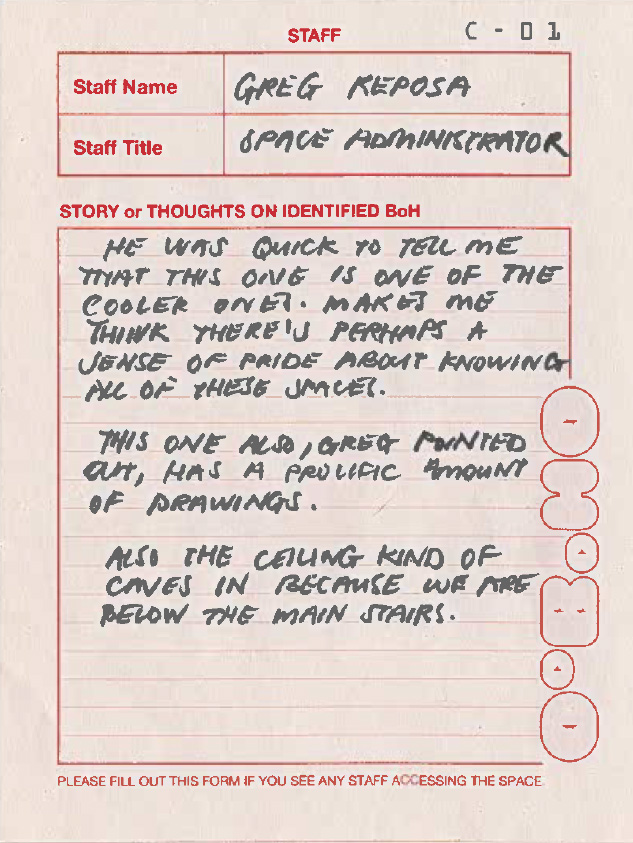 STAFF
C - 01
Staff Name
GREG REPOSA
Staff Title
SPACE ADMINISTRATOR
STORY or THOUGHTS ON IDENTIFIED BoH
HE WAS QUICK TO TELL ME
THAT THIS ONE IS ONE OF THE
COOLER ONES. MAKES ME
THINK THERE'S PERHAPS A
SENSE OF PRIDE ABOUT KNOWING
ALL OF THESE SPACES.
THIS ONE ALSO, GREG POINTED
OUT, HAS A PROLIFIC AMOUNT
OF DRAWINGS.
ALSO THE CEILING KIND OF
CAVES IN BECAUSE WE ARE
BELOW THE MAIN STAIRS.
PLEASE FILL OUT THIS FORM IF YOU SEE ANY STAFF ACCESSING THE SPACE